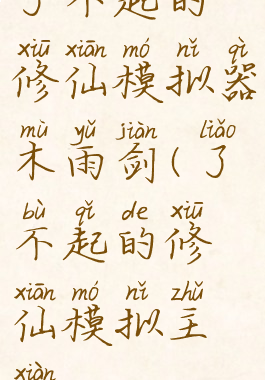 了不起的
xiū xiān mó nǐ qì
修仙模拟器
mù yǔ jiàn liǎo
木雨剑(了
bù qǐ de xiū
不起的修
xiān mó nǐ zhǔ
仙模拟主
xiàn